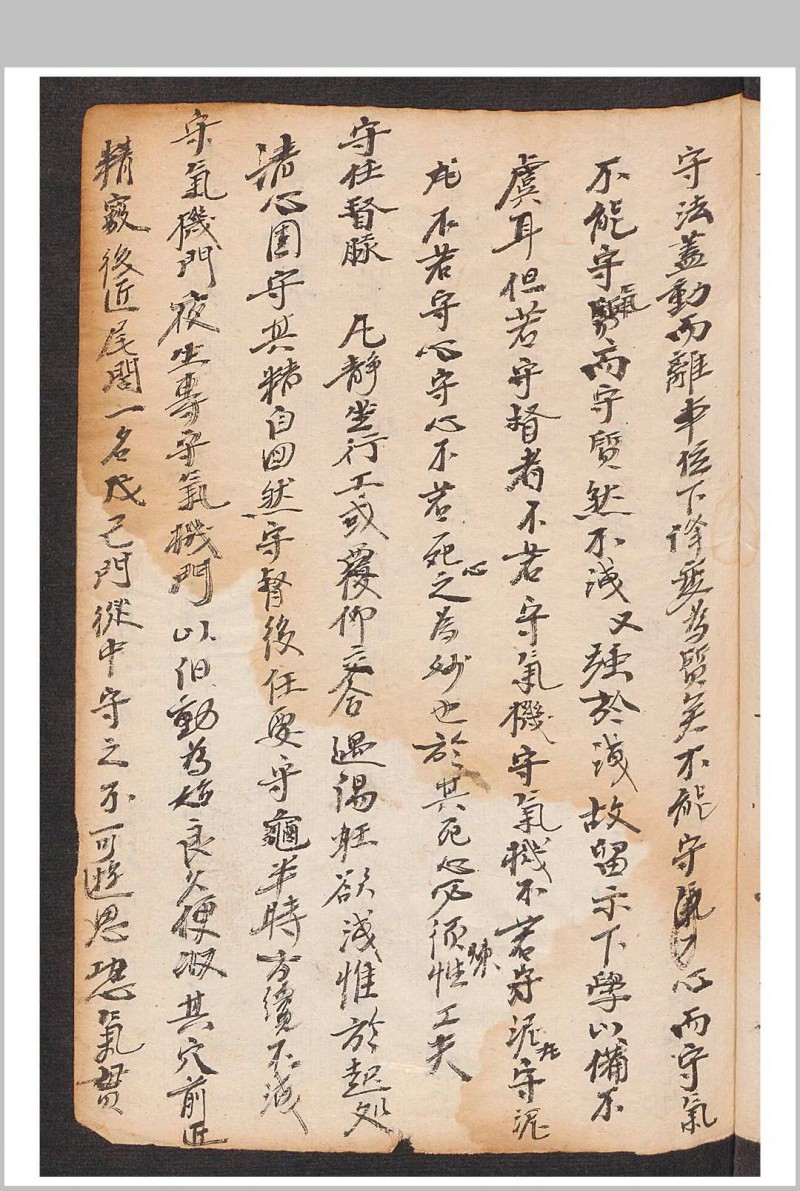 守法蓋動而離本位下降變為質矣不能守心而守氣
不能守氣而守質然不洩又強於洩故留示下學以備不
虞耳但若守督者不若守氣機守氣機不若守泥九守泥
九不若守心守心不若死心之為妙也於其死心必須煉性工夫
守任督脉　凡靜坐行工或覆仰交合遇陽旺欲洩惟於起処
清心固守其精自回然守督後任要守龜半時方纔不洩
守氣機門夜坐專守氣機門以但動為始良久便收其穴前近
精竅後近尾閭一名戊己門從中守之不可遊思恐氣貫